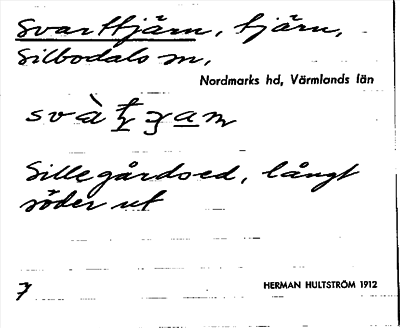 Svarttjärn, tjärn,
Silbodals sn,
Nordmarks hd, Värmlands län
Sillegårdsed, långt
söder ut
7 HERMAN HULTSTRÖM 1912